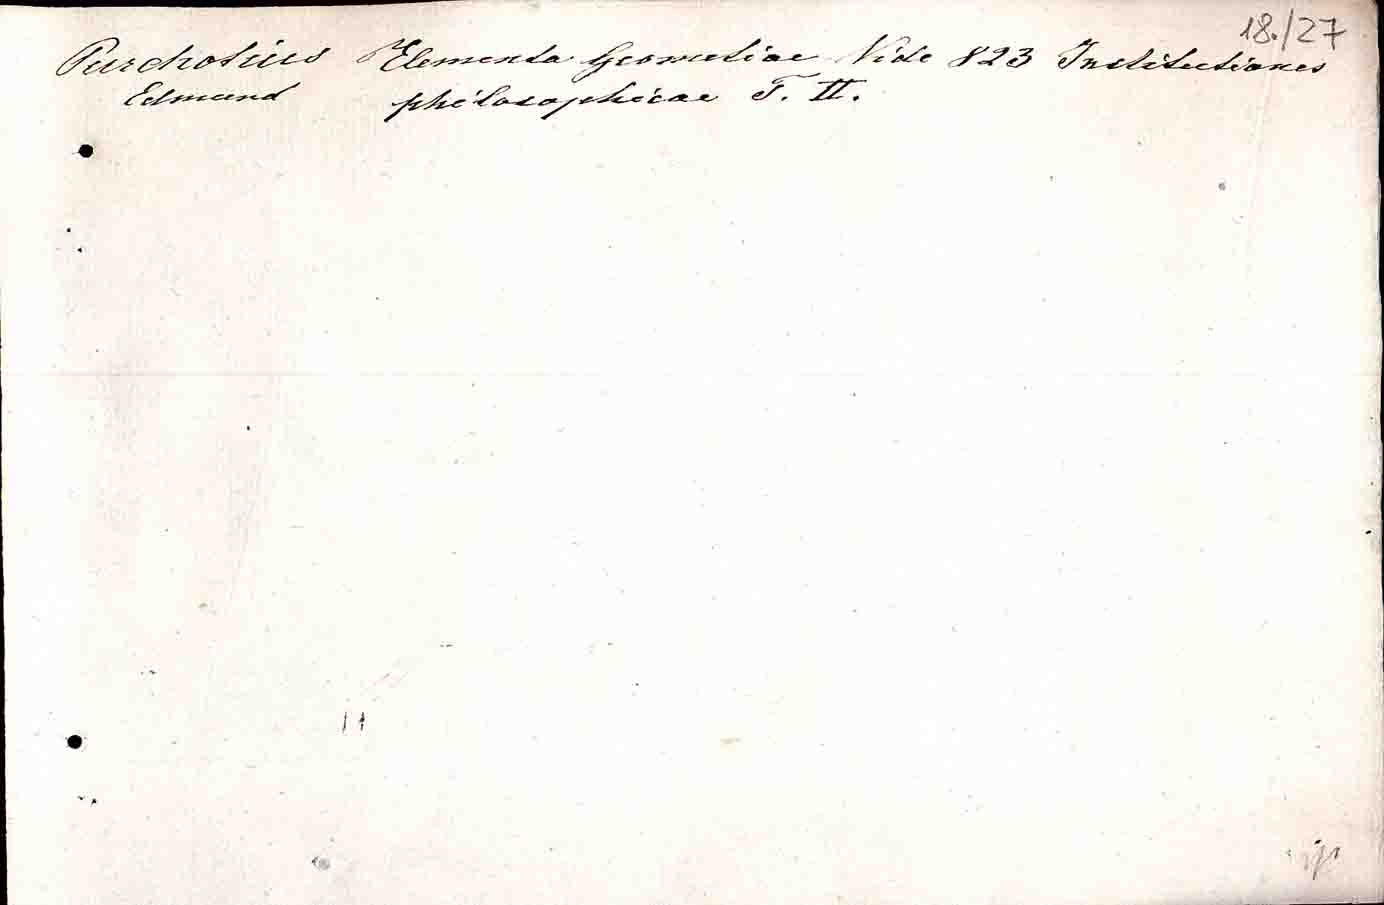 18./27
Purchotius Elementa Geometriae Vide 823 Institutiones
Edmund philosophicae T. II.